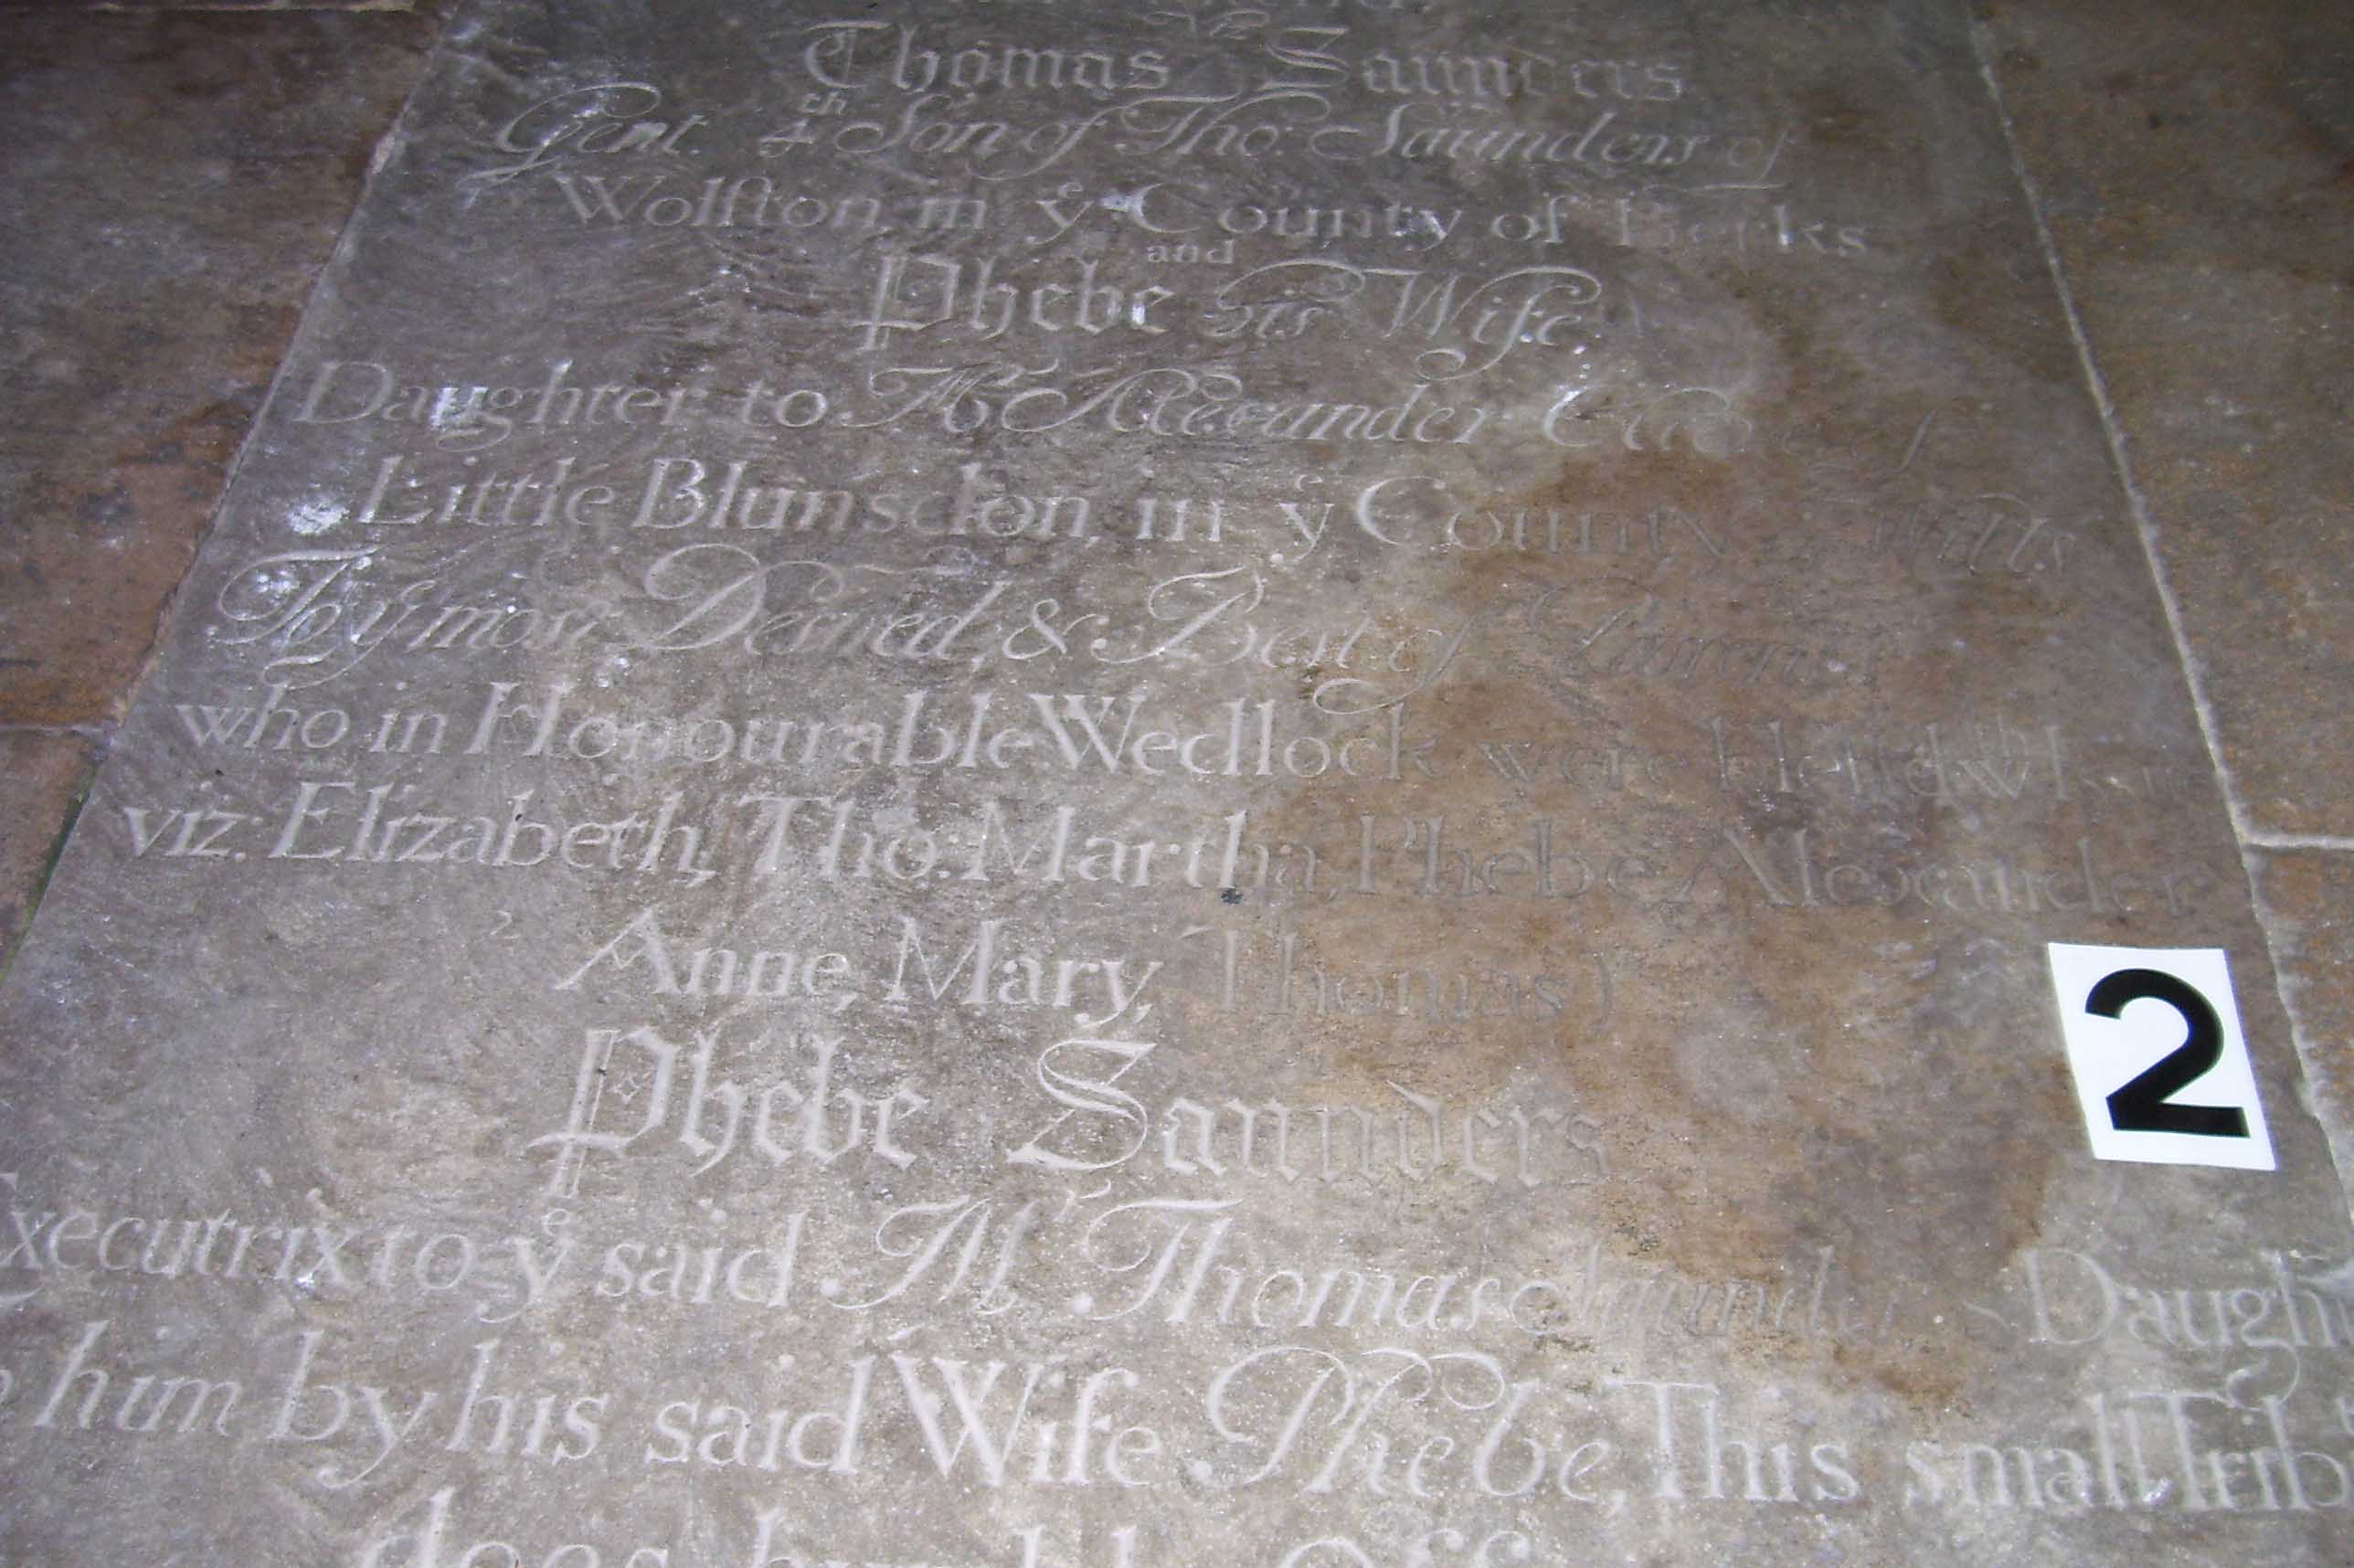 Mr
Thomas Saunders
Gent. 4th Son of Tho: Saunders of
Wolſton, in ye County of Berks
and
Phebe his Wife,
Daughter to Mr Alexander
Little Blunsdon, in ye County of Wilts
To ye most Desired, & Best of Parents
who in Honourable Wedlock were bless'd wth
viz: Elizabeth, Tho: Martha, Phebe, Alexander
Anne, Mary, Thomas)
Phebe Saunders
Executrix to ye said Mr Thomas Saunders Daugh
him by his said Wife Phebe, This small Trib
does
2